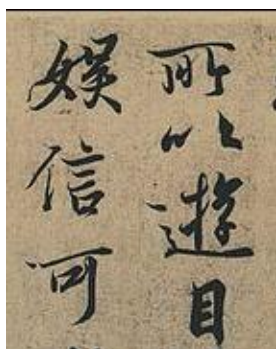 所以遊目
娱信可